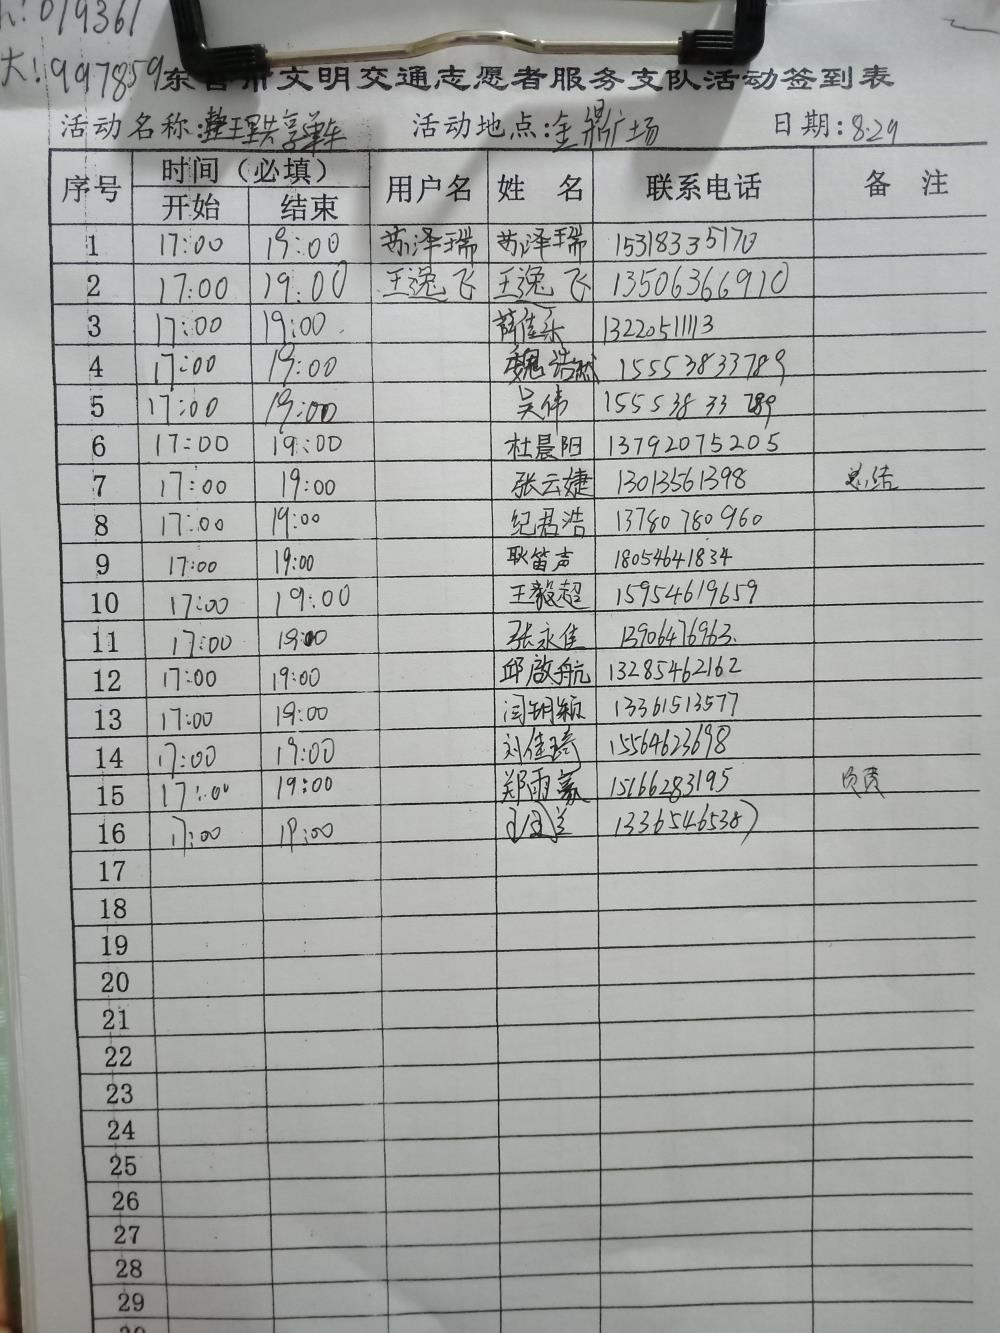 : 019361
大: 997859
东营市文明交通志愿者服务支队活动签到表
活动名称:整理共享单车 活动地点:金鼎广场 日期:8.29
序号 时间(必填) 用户名 姓 名 联系电话 备 注
开始 结束
1 17:00 19:00 苏泽瑞 苏泽瑞 15318335170
2 17:00 19:00 王逸飞 王逸飞 13506366910
3 17:00 19:00 薛佳乐 13220511113
4 17:00 19:00 魏浩然 15553833789
5 17:00 19:00 吴伟 15553833789
6 17:00 19:00 杜晨阳 13792075205
7 17:00 19:00 张云婕 13013561398 总结
8 17:00 19:00 纪君浩 13780780960
9 17:00 19:00 耿笛声 18054641834
10 17:00 19:00 王毅超 15954619659
11 17:00 19:00 张永佳 13906476963.
12 17:00 19:00 邱啟航 13285462162
13 17:00 19:00 闫钥颖 13361513577
14 17:00 19:00 刘佳琦 15564623698
15 17:00 19:00 郑雨 15166283195 负责
16 17:00 19:00 13365465387
17
18
19
20
21
22
23
24
25
26
27
28
29